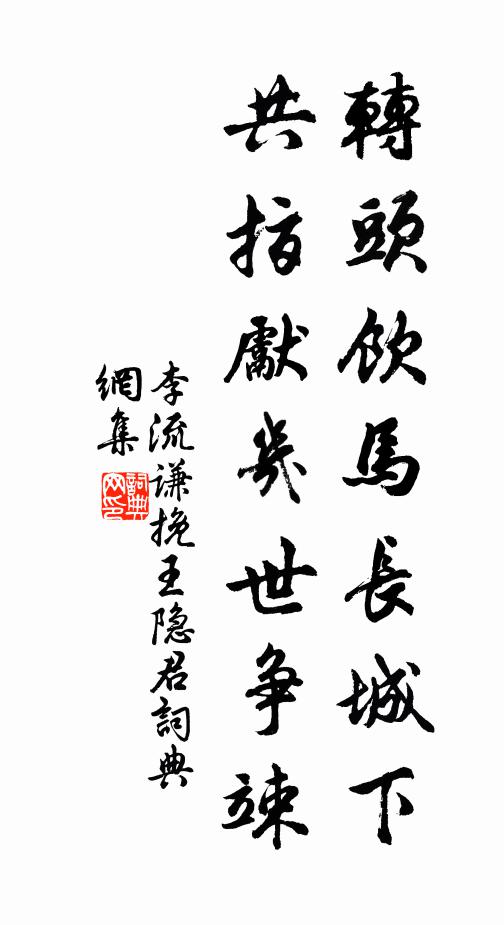 轉頭飲馬長城下
共指獻幾世爭竦
李流謙挽王隐君詞典
網集
詞典
网印